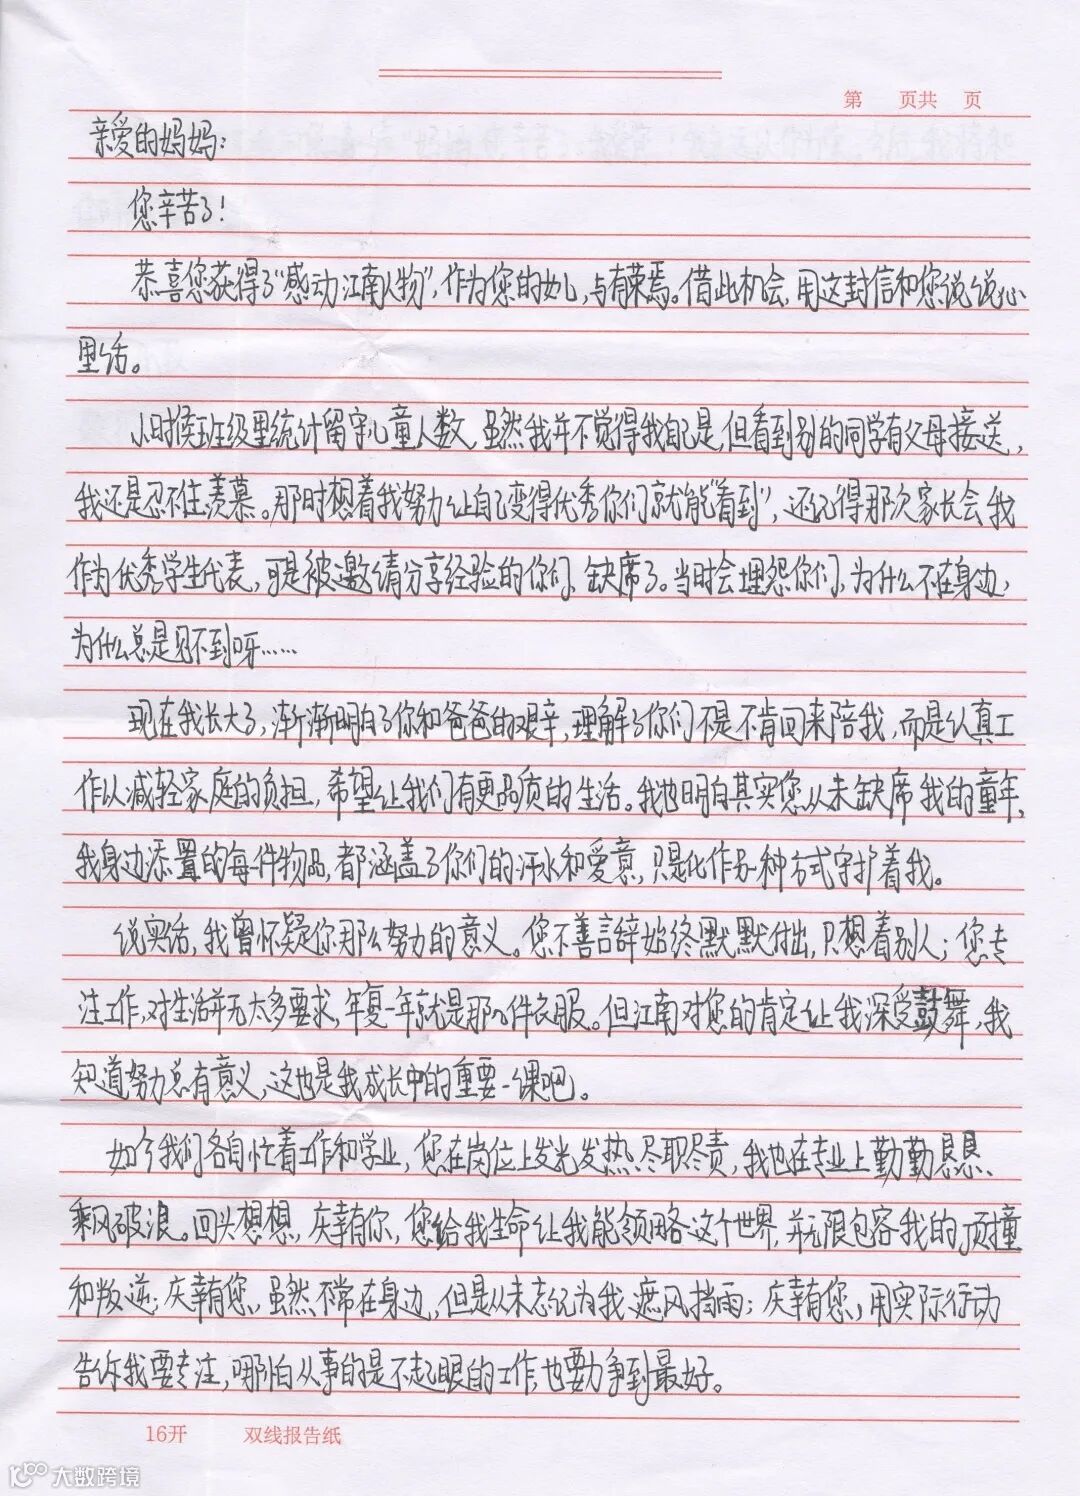 第 页共 页
亲爱的妈妈：
您辛苦了！
恭喜您获得了“感动江南人物”，作为您的女儿，与有荣焉。借此机会，用这封信和您说说心
里话。
小时候班级里统计留守儿童人数，虽然我并不觉得我自己是，但看到别的同学有父母接送，
我还是忍不住羡慕。那时想着我努力让自己变得优秀你们就能“看到”，还记得那次家长会我
作为优秀学生代表，可是被邀请分享经验的你们，缺席了。当时会埋怨你们，为什么不在身边，
为什么总是见不到呀……
现在我长大了，渐渐明白了你和爸爸的艰辛，理解了你们不是不肯回来陪我，而是认真工
作以减轻家庭的负担，希望让我们有更品质的生活。我也明白其实您从未缺席我的童年，
我身边添置的每一件物品，都涵盖了你们的汗水和爱意，只是化作另一种方式守护着我。
说实话，我曾怀疑你那么努力的意义。您不善言辞始终默默付出，只想着别人；您专
注工作，对生活并无太多要求，年复一年就是那几件衣服。但江南对您的肯定让我深受鼓舞，我
知道努力总有意义，这也是我成长中的重要一课吧。
如今我们各自忙着工作和学业，您在岗位上发光发热、尽职尽责，我也在专业上勤勤恳恳、
乘风破浪。回头想想，庆幸有你，您给我生命让我能领略这个世界，并无限包容我的顶撞
和叛逆；庆幸有您，虽然不常在身边，但是从未忘记为我遮风挡雨；庆幸有您，用实际行动
告诉我要专注，哪怕从事的是不起眼的工作，也要力争到最好。
16开 双线报告纸
大数跨境